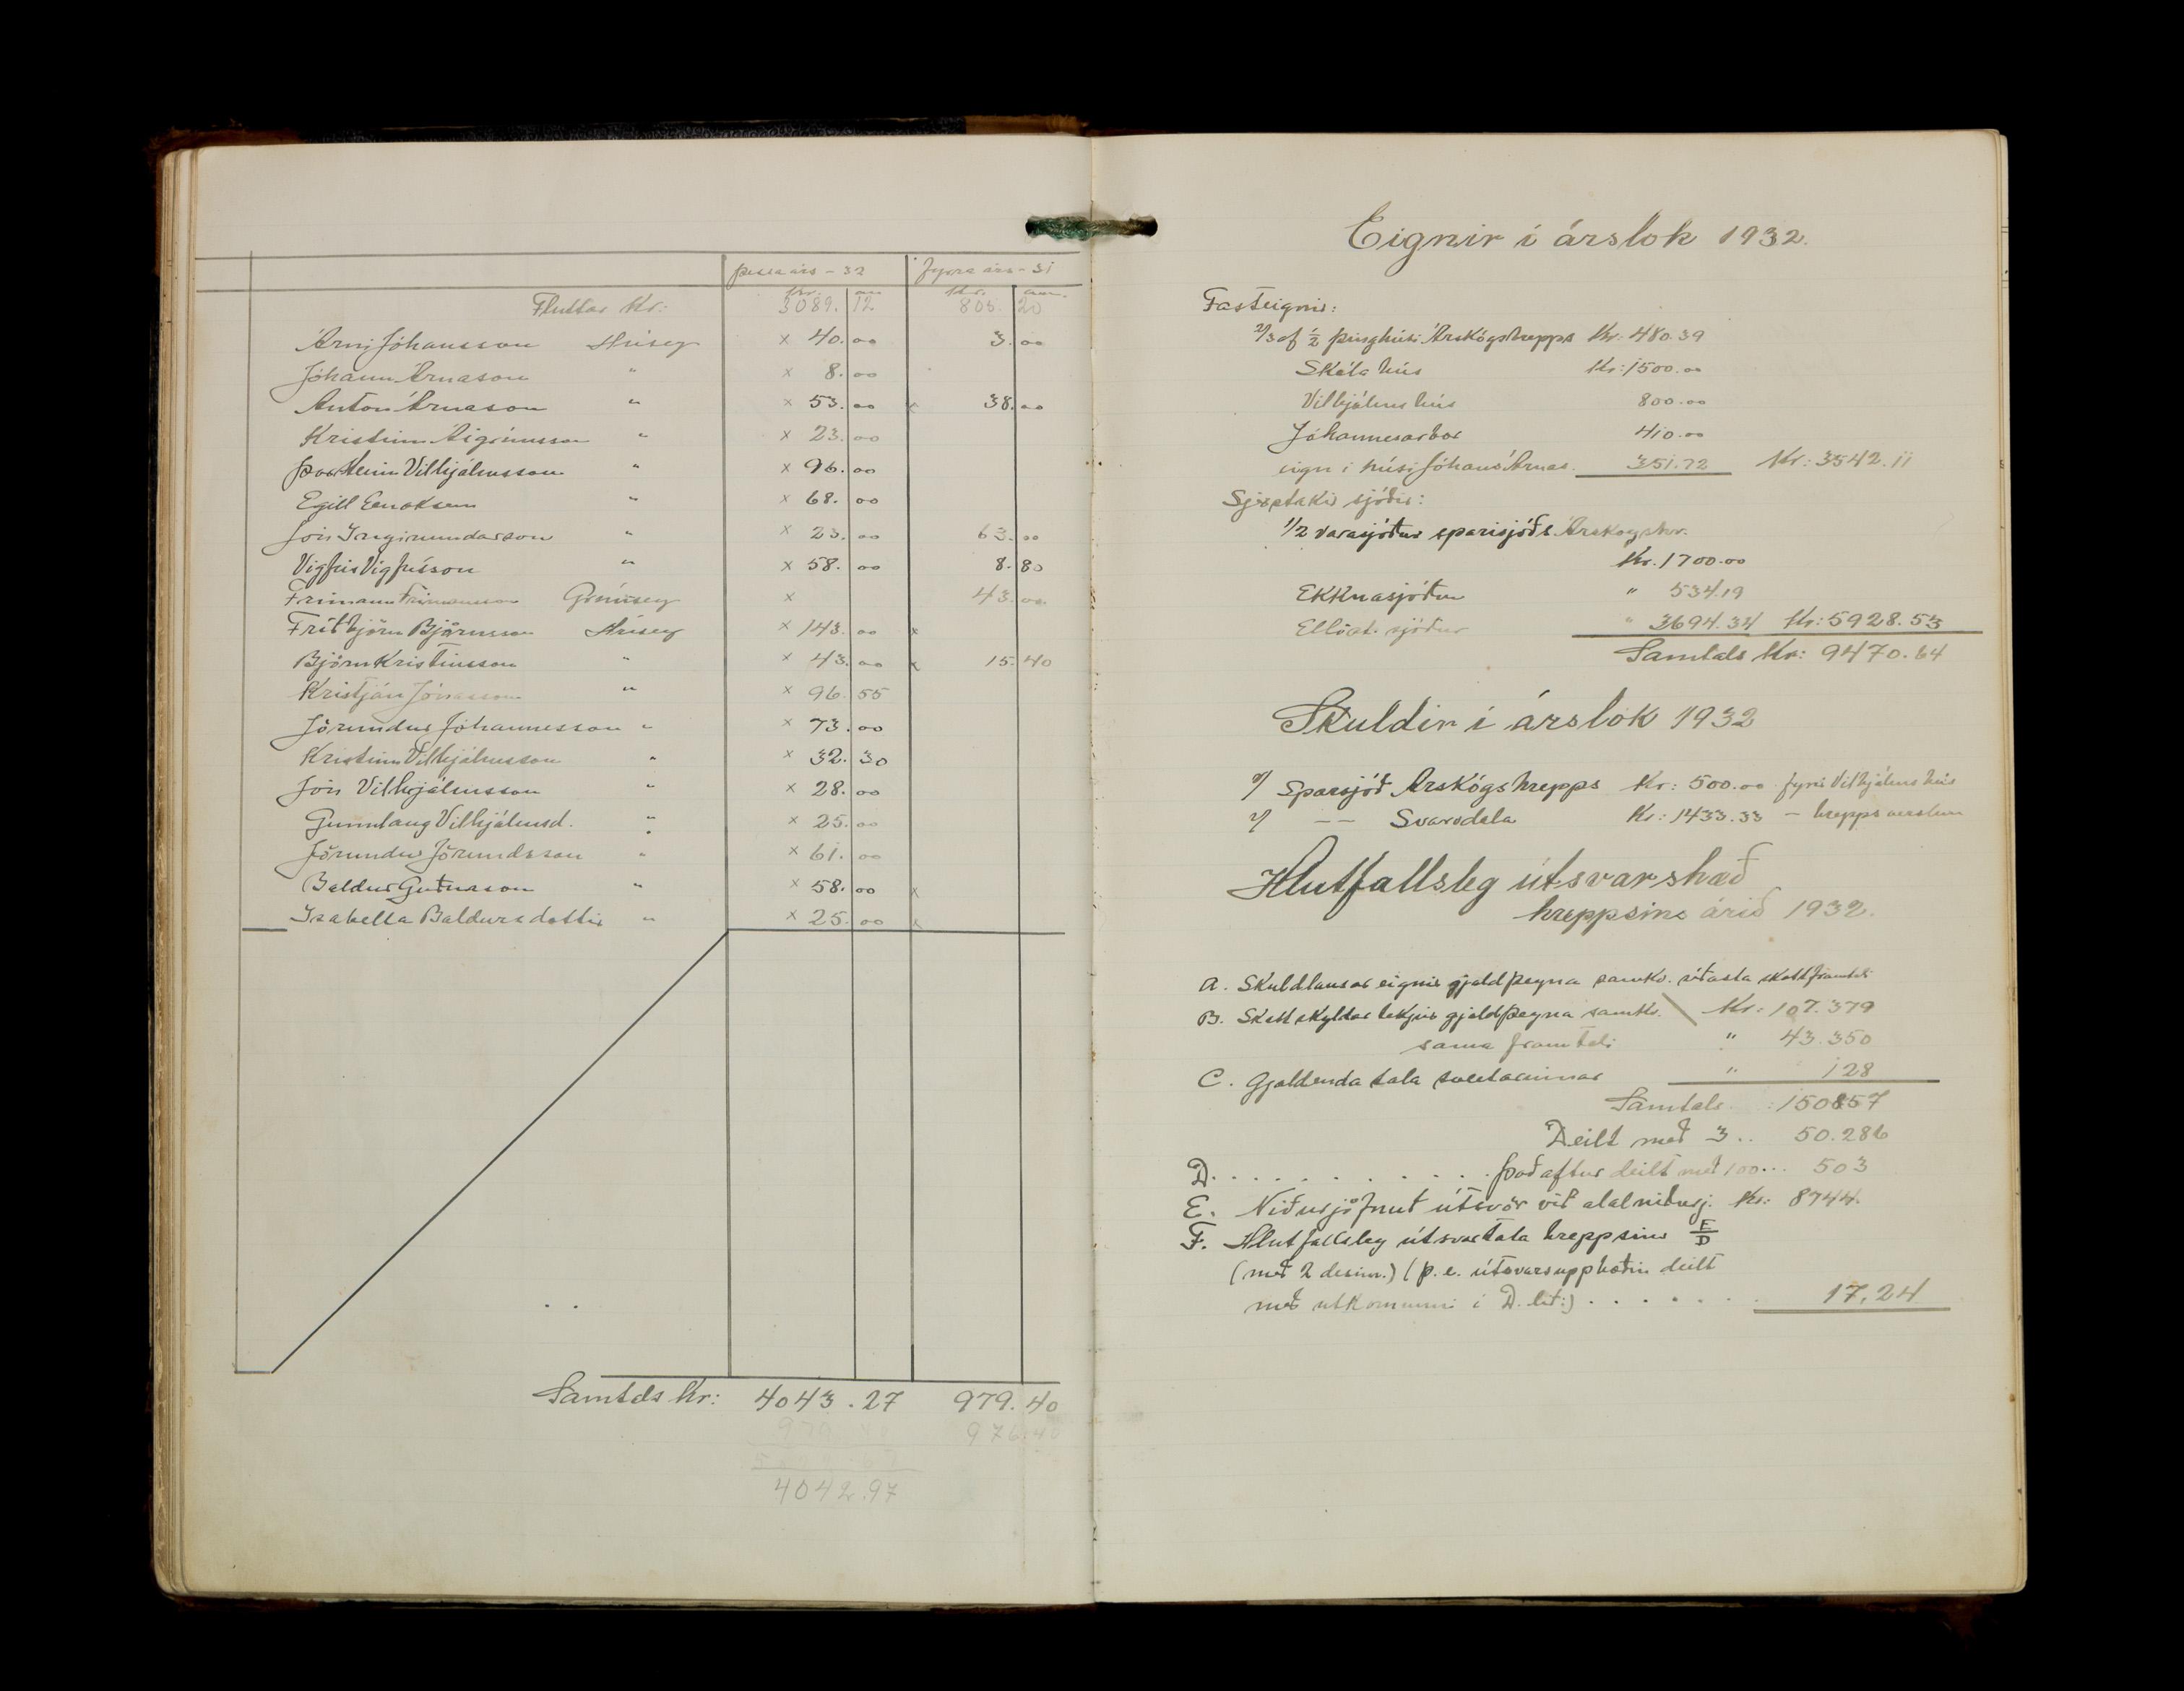 þessa árs - 32 fyrra árs - 31
kr. au kr. aur.
Fluttar Kr: 3089. 12 805. 20
Árni Jóhansson Hrísey × 40. 00 3. 00
Jóhann Árnason " × 8. 00
Anton Árnason " × 53. 00 × 38. 00
Kristinn Sigmúnsson " × 23. 00
Þorsteinn Vilhjálmsson " × 96. 00
Egill " × 68. 00
Jón Ingimundarson " × 23. 00 63. 00
Vigfús Vigfússon " × 58. 00 8. 80
Frímann Frímannsson Grímsey × 43. 00
Friðbjörn Björnsson Hrísey × 143. 00 ×
Björn Kristinsson " × 43. 00 × 15. 40
Kristján Jónasson " × 96. 55
Jörundur Jóhannesson " × 73. 00
Kristinn Vilhjálmsson " × 32. 30
Jón Vilhjálmsson " × 28. 00
Gunnlaug Vilhjálmsd. " × 25. 00
Jörundur Jörundsson " × 61. 00
Baldur Guðnason " × 58. 00 ×
Isabella Baldursdottir " × 25. 00 ×
Samtals Kr: 4043.27 979.40
979 976.40
4042.97
Eignir í árslok 1932.
Fasteignir:
2/3 af ½ þinghúsi Árskógshrepps Kr: 480.39
Skóla hús Kr: 1500.00
Vilhjálms hús 800.00
Jóhannesarbor 410.00
eign i húsi Jóhans Árnas. 351.72 Kr: 3542.11
sjóðir:
1/2 varasjóður sparisjóðs Árskogshr.
Kr. 1700.00
Ekknasjóður " 534.19
Ellist. sjóður " 3694.34 Kr: 5928.53
Samtals Kr: 9470.64
Skuldir í árslok 1932
1/ Sparsjóð Arskógshrepps Kr: 500.00 fyrir Vilhjálms hús
2/ -- Svarvdela Kr: 1433.33 - hrepps
Hlutfallsleg útsvarshæð
hreppsins árið 1932.
A. Skuldlausar eignir gjaldþegna samkv. síðasta skattframtali
B. Skattskyldar tekjur gjaldþegna samkv. \ Kr: 107.379
sama framtali " 43.350
C. Gjaldenda tala sveitarinnar " 128
Samtals :150857
Deilt með 3.. 50.286
D. . . . . . . . . . . það aftur deilt með 100... 503
E. Niðurjöfnuð útsvör við alalniðurj. Kr: 8744.
F. Hlutfallsleg útsvarstala hreppsins E/D
(með 2 desim.) (þ.e. útsvarsupphæðin deilt
með útkomunni í D. lið:) . . . . . . . 17,24